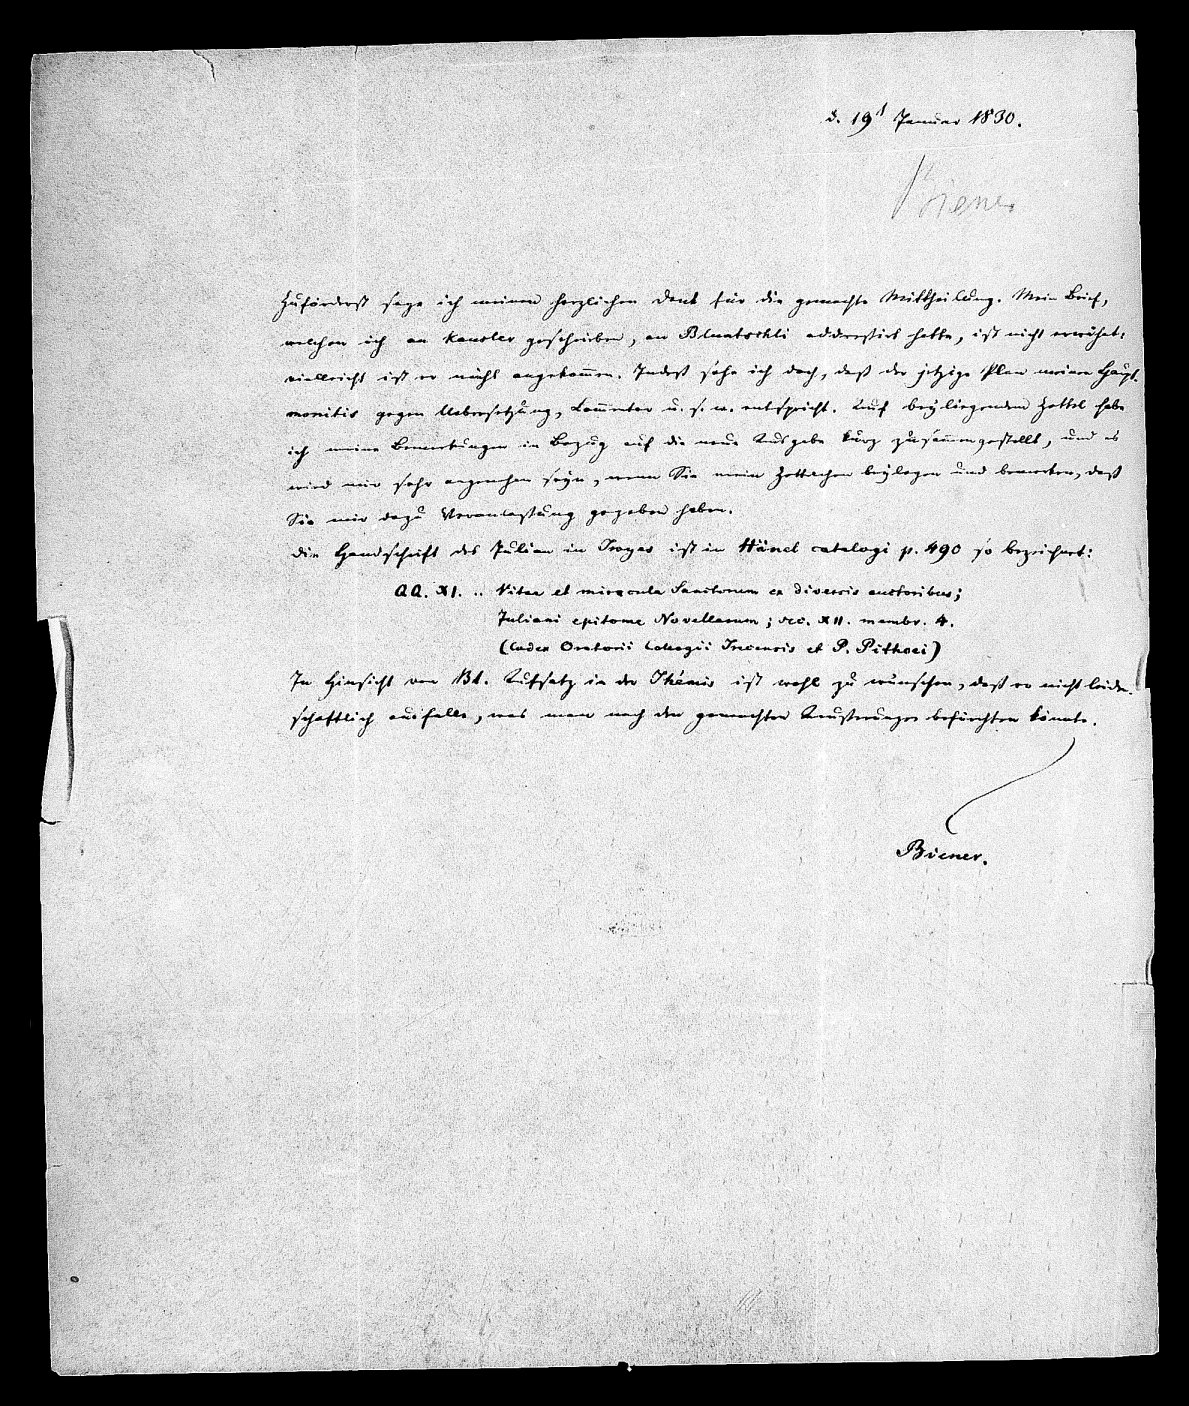 d. 19t Januar 1830.
Biener
Zuförderst sage ich meinen herzlichen Dank für die gemachte Mittheilung. Mein Brief,
welchen ich an Kausler geschrieben, an Bluntschli addressirt hatte, ist nicht erwähnt:
vielleicht ist er nicht angekom̅en. Indeß sehe ich doch, daß der jetzige Plan meinen Haupt-
monitis gegen Uebersetzung, Com̅entar u. s. w. entspricht. Auf beyliegendem Zettel habe
ich meine Bemerkungen in Bezug auf die neue Ausgabe kurz zusammengestellt, und es
wird mir sehr angenehm seyn, wenn Sie mein Zettelchen beylegen und bemerken, daß
Sie mir dazu Veranlassung gegeben haben.
Die Handschrift des Julian in Troyes ist in Hänel catalogi p. 490 so bezeichnet:
QQ. XI. .. Vitae et miracula Sanctorum ex diversis auctoribus;
Juliani epitome Novellarum; sec. XII. membr. 4.
(Codex Oratorii Collegii Trecensis et P. Pithoei)
In Hinsicht von Bl. Aufsatz in der Thémis ist wohl zu wünschen, daß er nicht leiden-
schaftlich ausfalle, was man nach den gemachten Aeußerungen befürchten könnte.
Biener.